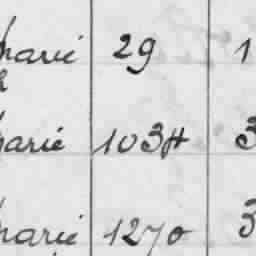 marié 29 1
marié 1034 3
marié 1270 3